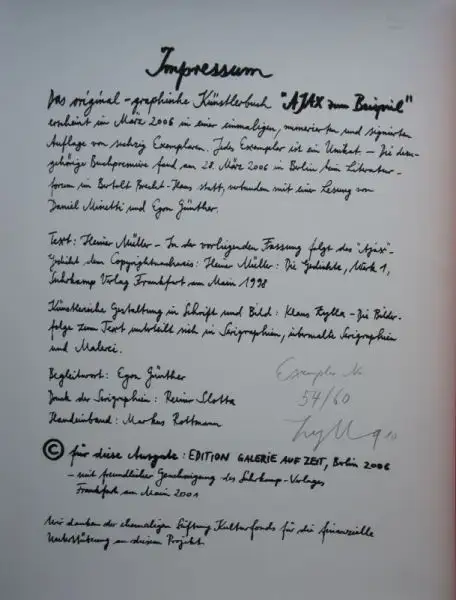 Impressum
Das original-graphische Künstlerbuch "AJAX zum Beispiel"
erscheint im März 2006 in einer einmaligen, numerierten und signierten
Auflage von sechzig Exemplaren. Jedes Exemplar ist ein Unikat. – Die dazu-
gehörige Buchpremiere fand am 28. März 2006 in Berlin im Literatur-
forum im Bertolt Brecht-Haus statt, verbunden mit einer Lesung von
Daniel Minetti und Egon Günther.
Text: Heiner Müller – In der vorliegenden Fassung folgt das "Ajax"-
Gedicht dem Copyrightnachweis: Heiner Müller: Die Gedichte, Werke 1,
Suhrkamp Verlag Frankfurt am Main 1998
Künstlerische Gestaltung in Schrift und Bild: Klaus Zylla – Die Bilder-
folge zum Text unterteilt sich in Serigraphien, übermalte Serigraphien
und Malerei.
Begleitwort: Egon Günther
Druck der Serigraphien: Reiner Slotta
Handeinband: Markus Rottmann
Exemplar Nr
54/60
© für diese Ausgabe: EDITION GALERIE AUF ZEIT, Berlin 2006
– mit freundlicher Genehmigung des Suhrkamp-Verlages
Frankfurt am Main 2001
Wir danken der ehemaligen Stiftung Kulturfonds für die finanzielle
Unterstützung an diesem Projekt.